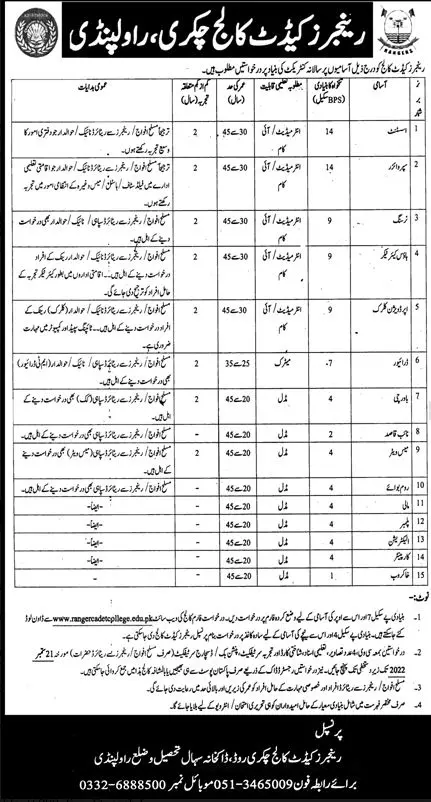 رینجرز کیڈٹ کالج چکری، راولپنڈی
RANGERS
رینجرز کیڈٹ کالج کو درج ذیل آسامیوں پر سالانہ کنٹریکٹ کی بنیاد پر درخواستیں مطلوب ہیں۔
نمبر شمار | آسامی | تنخواہ کا بنیادی (BPS سکیل) | مطلوبہ تعلیمی قابلیت | عمر کی حد (سال) | کم از کم متعلقہ تجربہ (سال) | عمومی ہدایات
1 | اسسٹنٹ | 14 | انٹرمیڈیٹ/آئی کام | 30 سے 45 | 2 | ترجیحاً مسلح افواج/رینجرز سے ریٹائرڈ نائیک/حوالدار جو دفتری امور کا وسیع تجربہ رکھتے ہوں۔
2 | سپروائزر | 14 | انٹرمیڈیٹ/آئی کام | 30 سے 45 | 2 | ترجیحاً مسلح افواج/رینجرز سے ریٹائرڈ نائیک/حوالدار جو اقامتی تعلیمی ادارے میں فیلڈ سٹاف/ہاسٹل/میس وغیرہ کے انتظامی امور میں تجربہ رکھتے ہوں۔
3 | نرسنگ | 9 | انٹرمیڈیٹ/آئی کام | 30 سے 45 | 2 | مسلح افواج/رینجرز سے ریٹائرڈ سپاہی/نائیک/حوالدار بھی درخواست دینے کے اہل ہیں۔
4 | ہاؤس کیئر ٹیکر | 9 | انٹرمیڈیٹ/آئی کام | 30 سے 45 | 2 | مسلح افواج/رینجرز سے ریٹائرڈ نائیک/حوالدار رینک کے افراد درخواست دینے کے اہل ہیں۔ اقامتی اداروں میں بطور کیئر ٹیکر تجربہ کے حامل افراد کو ترجیح دی جائے گی۔
5 | اپر ڈویژن کلرک | 9 | انٹرمیڈیٹ/آئی کام | 30 سے 45 | 2 | مسلح افواج/رینجرز سے ریٹائرڈ نائیک/حوالدار (کلرک) رینک کے افراد درخواست دینے کے اہل ہیں۔ ٹائپنگ سپیڈ اور کمپیوٹر میں مہارت ضروری ہے۔
6 | ڈرائیور | 7- | میٹرک | 25 سے 35 | 2 | مسلح افواج/رینجرز سے ریٹائرڈ سپاہی/نائیک/حوالدار (ایم ٹی ڈرائیور) بھی درخواست دینے کے اہل ہیں۔
7 | باورچی | 4 | مڈل | 20 سے 45 | 2 | مسلح افواج/رینجرز سے ریٹائرڈ سپاہی (کک) بھی درخواست دینے کے اہل ہیں۔
8 | نائب قاصد | 2 | مڈل | 20 سے 45 | - | مسلح افواج/رینجرز سے ریٹائرڈ سپاہی بھی درخواست دینے کے اہل ہیں۔
9 | میس ویٹر | 4 | مڈل | 20 سے 45 | 2 | مسلح افواج/رینجرز سے ریٹائرڈ سپاہی (میس ویٹر) بھی درخواست دینے کے اہل ہیں۔
10 | روم بوائے | 4 | مڈل | 20 سے 45 | - | مسلح افواج/رینجرز سے ریٹائرڈ سپاہی بھی درخواست دینے کے اہل ہیں۔
11 | مالی | 4 | مڈل | 20 سے 45 | - | -ایضاً-
12 | پلمبر | 4 | مڈل | 20 سے 45 | - | -ایضاً-
13 | الیکٹریشن | 4 | مڈل | 20 سے 45 | - | -ایضاً-
14 | کارپینٹر | 4 | مڈل | 20 سے 45 | - | -ایضاً-
15 | خاکروب | 1 | مڈل | 20 سے 45 | - | -ایضاً-
نوٹ:-
1۔ بنیادی پے سکیل 7 اور اس سے اوپر کی آسامی کے لیے وضع کردہ فارم پر درخواست دیں۔ درخواست فارم کالج کی ویب سائٹ www.rangercadetcpllege.edu.pk سے ڈاؤن لوڈ
کئے جا سکتے ہیں۔ بنیادی پے سکیل 4 اور اس سے نیچے کی آسامی کے لیے سادہ کاغذ پر درخواست بنام پرنسپل رینجرز کیڈٹ کالج دی جا سکتی ہے۔
2۔ درخواستیں بمعہ سی وی، 4 عدد تصاویر، تعلیمی اسناد و شناختی کارڈ اور تجربہ سرٹیفکیٹ، پنشن بک/ڈسچارج سرٹیفکیٹ (صرف مسلح افواج/رینجرز سے ریٹائرڈ حضرات) مورخہ 21 ستمبر
2022 تک زیر دستخطی تک پہنچ جائیں۔ نیز درخواستیں رجسٹرڈ ڈاک کے ذریعے صرف پاکستان پوسٹ سے ہی بھیجیں یا بالمشافہ کالج ہذا میں جمع کروائی جا سکتی ہیں۔
3۔ مسلح افواج/رینجرز سے ریٹائرڈ افراد اور خصوصی مہارت کے حامل افراد کو عمر کی زیریں اور بالائی حد میں رعایت دی جائے گی۔
4۔ صرف مختصر فہرست میں شامل بنیادی معیار کے حامل امیدواران کو ہی تحریری امتحان/انٹرویو کے لیے بلایا جائے گا۔
پرنسپل
رینجرز کیڈٹ کالج چکری روڈ، ڈاکخانہ سہال تحصیل و ضلع راولپنڈی
برائے رابطہ فون 051-3465009 موبائل نمبر 0332-6888500